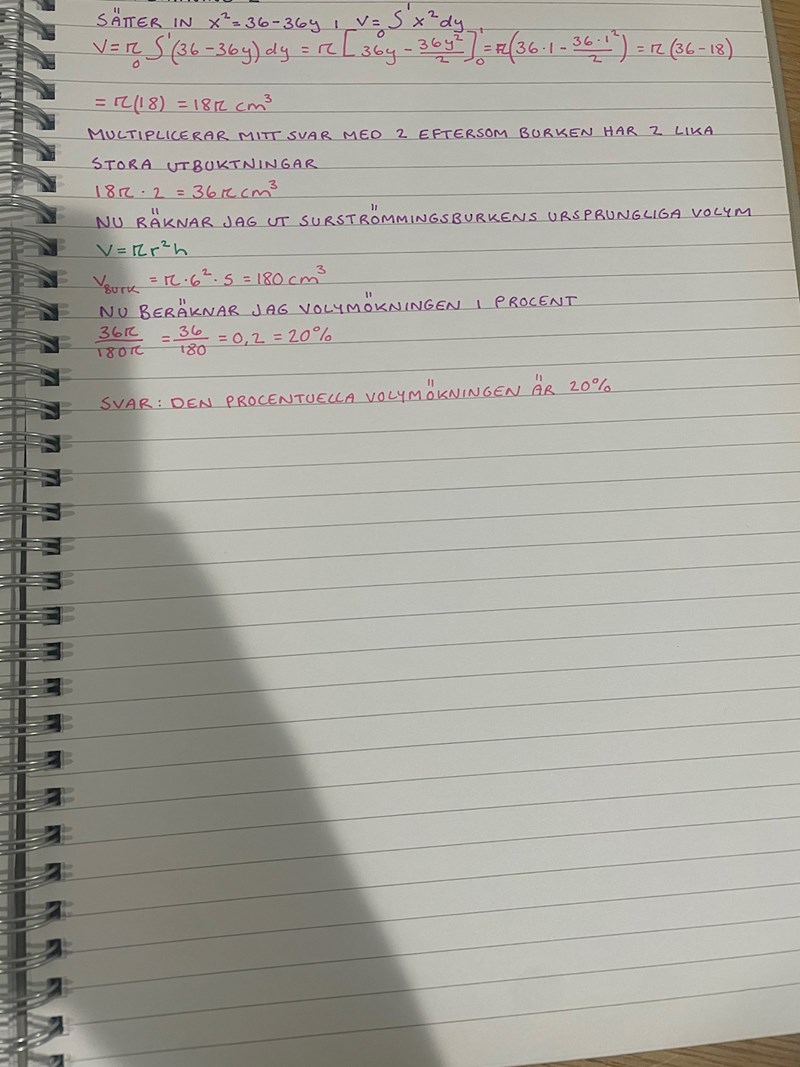 SÄTTER IN x²=36-36y i V=₀∫¹x²dy
V=π₀∫¹(36-36y)dy = π[36y-36y²/2]₀¹=π(36·1-36·1²/2)=π(36-18)
=π(18)=18π cm³
MULTIPLICERAR MITT SVAR MED 2 EFTERSOM BURKEN HAR 2 LIKA
STORA UTBUKTNINGAR
18π·2=36π cm³
NU RÄKNAR JAG UT SURSTRÖMMINGSBURKENS URSPRUNGLIGA VOLYM
V=πr²h
V_BURK=π·6²·5=180 cm³
NU BERÄKNAR JAG VOLYMÖKNINGEN I PROCENT
36π/180π=36/180=0,2=20%
SVAR: DEN PROCENTUELLA VOLYMÖKNINGEN ÄR 20%